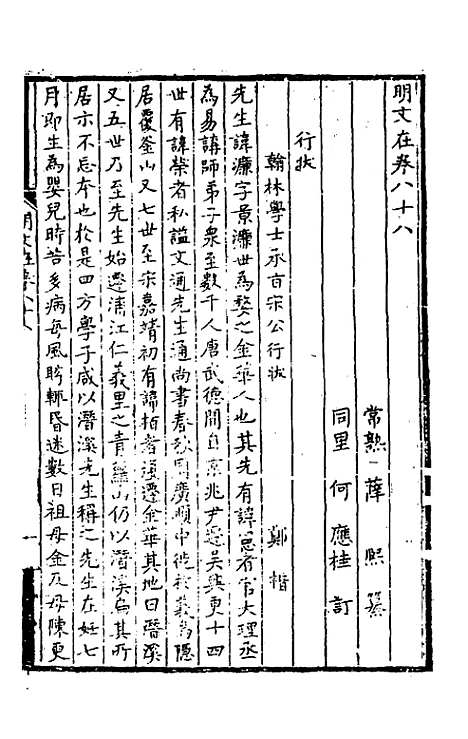 明文在卷八十八
常熟 薛 熙 纂
同里 何 應桂 訂
行狀
翰林學士承旨宋公行狀 鄭楷
先生諱濂字景濂世為婺之金華人也其先有諱 者官大理丞
為易講師弟子衆至數千人唐武德間自京兆尹遷吳興更十四
世有諱榮者私謚文通先生通尚書春秋周廣順中徙於義烏隱
居覆釜山又七世至宋嘉靖初有諱柏者復遷金華其地曰潛溪
又五世乃至先生始遷浦江仁義里之青蘿山仍以潛溪為其所
居示不忘本也於是四方學子咸以潛溪先生稱之先生在妊七
月即生為嬰兒時苦多病每風眩輒昏迷數日祖母金及母陳更
明文在卷八十八
一